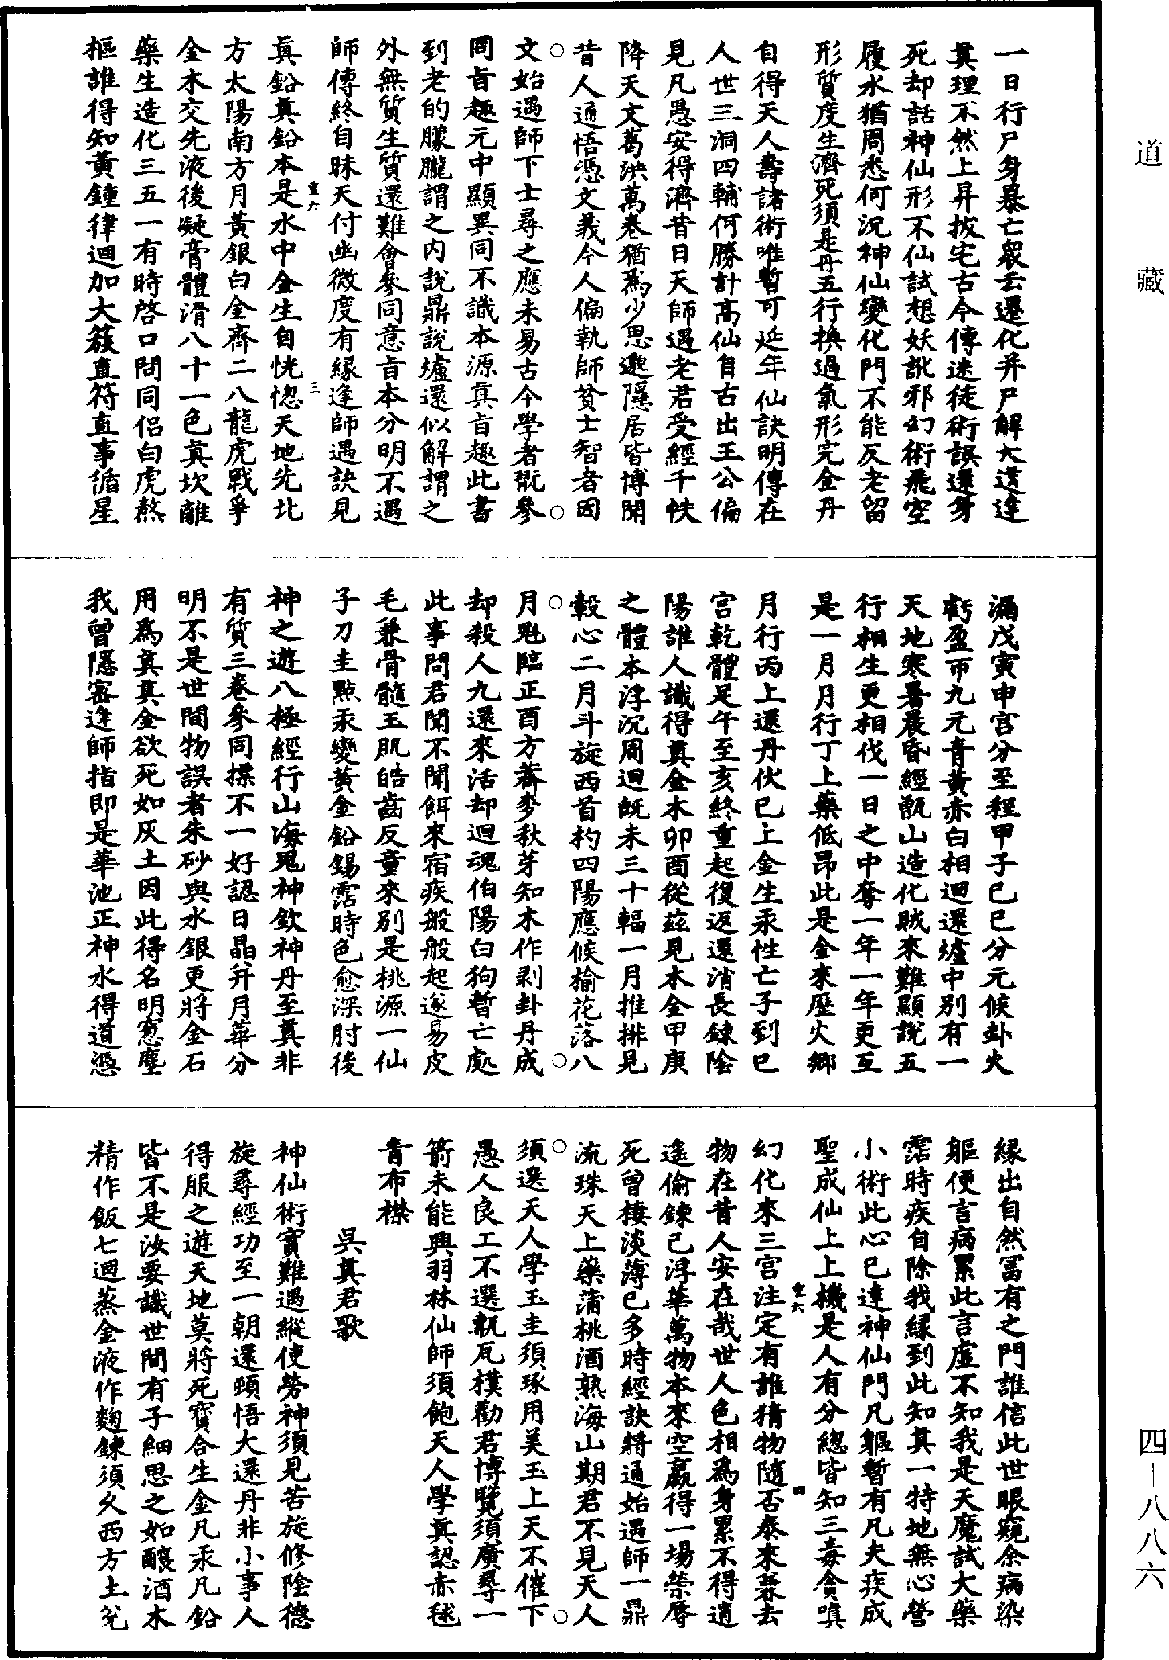 道藏
一日行尸身暴亡衆云遷化并尸解大道逢
真理不然上昇拔宅古今傳迷徒術誤還身
死却話神仙形不仙試想妖訛邪幻術飛空
履水猶周悉何況神仙變化門不能反老留
形質度生濟死須是丹五行換過氣形完金丹
自得天人壽諸術唯暫可延年仙訣明傳在
人世三洞四輔何勝計高仙自古出王公偏
見凡愚安得濟昔日天師遇老君受經千帙
降天文葛洪萬卷猶爲少思邈隱居皆博聞
昔人通悟憑文義今人偏執師貧士智者因
文始遇師下士尋之應未易古今學者既參
同旨趣元中顯異同不識本源真旨趣此書
到老的朦朧謂之內說鼎說爐還似解謂之
外無質生質還難會參同意旨本分明不遇
師傳終自昧天付幽微度有緣逢師遇訣見
真鉛真鉛本是水中金生自恍惚天地先北
方太陽南方月黃銀白金齊二八龍虎戰爭
金木交先液後凝膏體滑八十一色真坎離
藥生造化三五一有時啓口問同侶白虎熬
樞誰得知黃鐘律迴加大簇直符直事循星
漏戊寅申宮分至程甲子己巳分元候卦火
虧盈帀九元青黃赤白相迴還爐中別有一
天地寒暑晨昏經甑山造化賊來難顯說五
行相生更相伐一日之中奪一年一年更互
是一月月行丁上藥低昂此是金來歷火鄉
月行丙上還丹伏巳上金生汞性亡子到巳
宮乾體足午至亥終重起復返還消長鍊陰
陽誰人識得真金木卯酉從茲見木金甲庚
之體本浮沉周迴既未三十輻一月推排見
轂心二月斗旋西首杓四陽應候榆花落八
月魁臨正酉方蕎麥秋芽知木作剥卦丹成
却殺人九還來活却迴魂伯陽白狗暫亡處
此事問君聞不聞餌來宿疾般般起遂易皮
毛兼骨髓玉肌皓齒反童來別是桃源一仙
子刀圭點汞變黃金鉛錫霑時色愈深肘後
神之遊八極經行山海鬼神欽神丹至真非
有質三卷參同摽不一好認日晶并月華分
明不是世間物誤者朱砂與水銀更將金石
用爲真真金欲死如灰土因此得名明窻塵
我曾隱密逢師指即是華池正神水得道憑
緣出自然冨有之門誰信此世眼窺余病染
軀便言病累此言虛不知我是天魔試大藥
霑時疾自除我緣到此知其一特地無心營
小術此心已達神仙門凡軀暫有凡夫疾成
聖成仙上上機是人有分總皆知三毒貪嗔
幻化來三宮注定有誰猜物隨否泰來莽去
物在昔人安在哉世人色相爲身累不得逍
遙偷鍊己浮華萬物本來空贏得一場榮辱
死曾棲淡薄已多時經訣將通始遇師一鼎
流珠天上藥蒲桃酒熟海山期君不見天人
須選天人學玉圭須琢用美玉上天不催下
愚人良工不選甎瓦樸勸君博覽須廣尋一
箭未能興羽林仙師須飽天人學真認赤毬
青布襟
吳真君歌
神仙術實難遇縱使勞神須見苦旋修陰德
旋尋經功至一朝還頓悟大還丹非小事人
得服之遊天地莫將死寶合生金凡汞凡鉛
皆不是汝要識世間有子細思之如釀酒木
精作飯七週蒸金液作麴鍊須久西方土兌
四－八八六